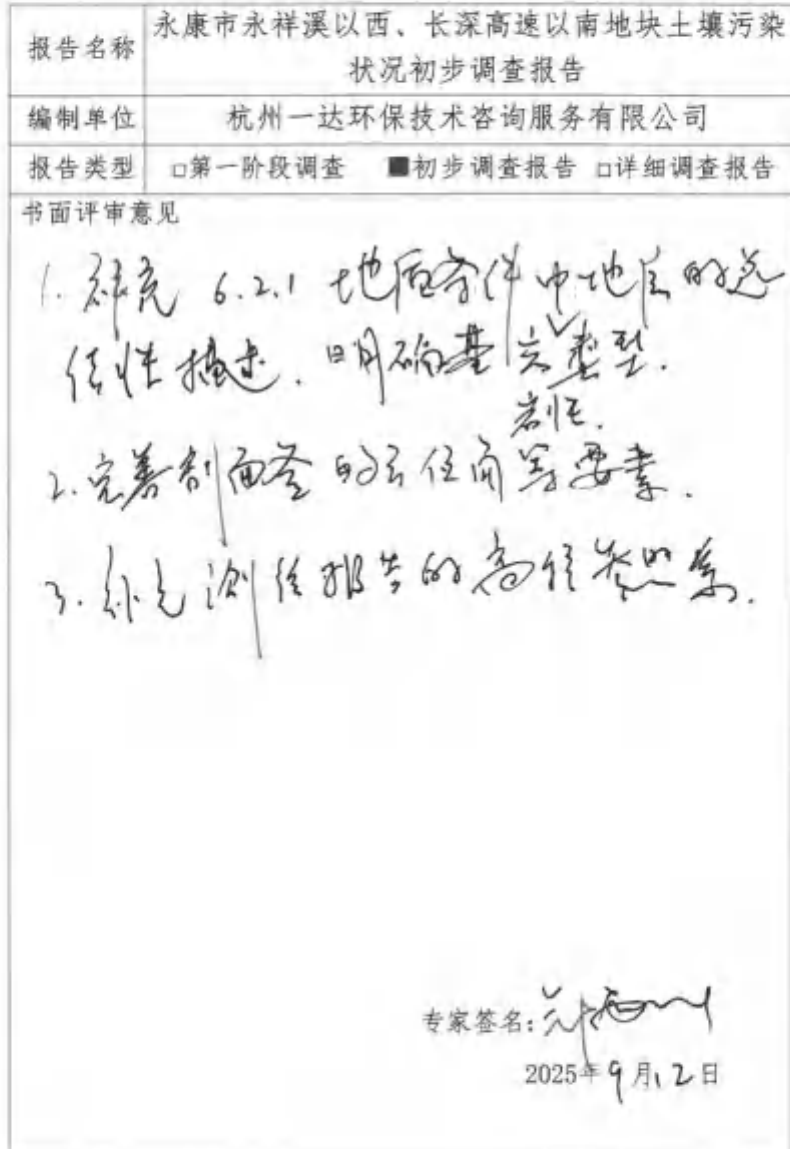 报告名称 永康市永祥溪以西、长深高速以南地块土壤污染
状况初步调查报告
编制单位 杭州一达环保技术咨询服务有限公司
报告类型 □第一阶段调查 ■初步调查报告 □详细调查报告
书面评审意见
1. 补充 6.2.1 地质条件中地层的连
续性描述. 明确基岩类型.
岩性.
2. 完善剖面图的方位角等要素.
3. 补充测绘报告的高程
专家签名:
2025年9月12日